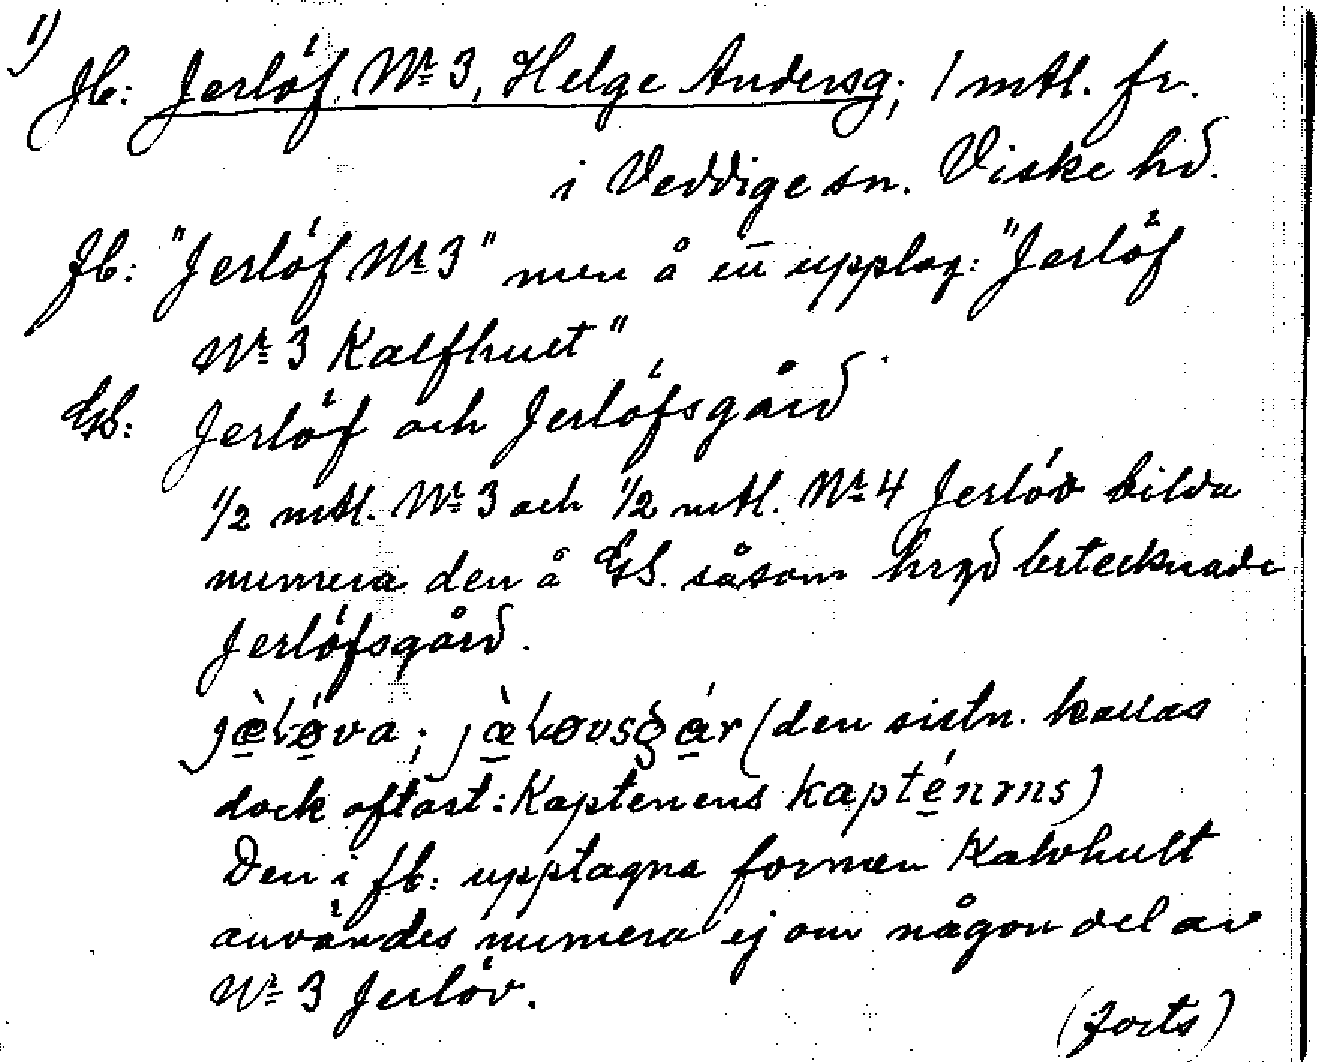 1)
Jb: Jerlöf, Nr 3, Helge Andersg; 1 mtl. fr.
i Veddige sn. Viske hd.
fb: "Jerlöf Nr 3" men å en upplag: "Jerlöf
Nr 3 Kalfhult"
GS: Jerlöf och Jerlöfsgård
1/2 mtl. Nr 3 och 1/2 mtl. Nr 4 Jerlöv bilda
numera den å GS. såsom hrgd betecknade
Jerlöfsgård.
den sistn. kallas
dock oftast: Kaptenens
Den i fb: upptagna formen Kalvhult
användes numera ej om någon del av
Nr 3 Jerlöv.
(forts)